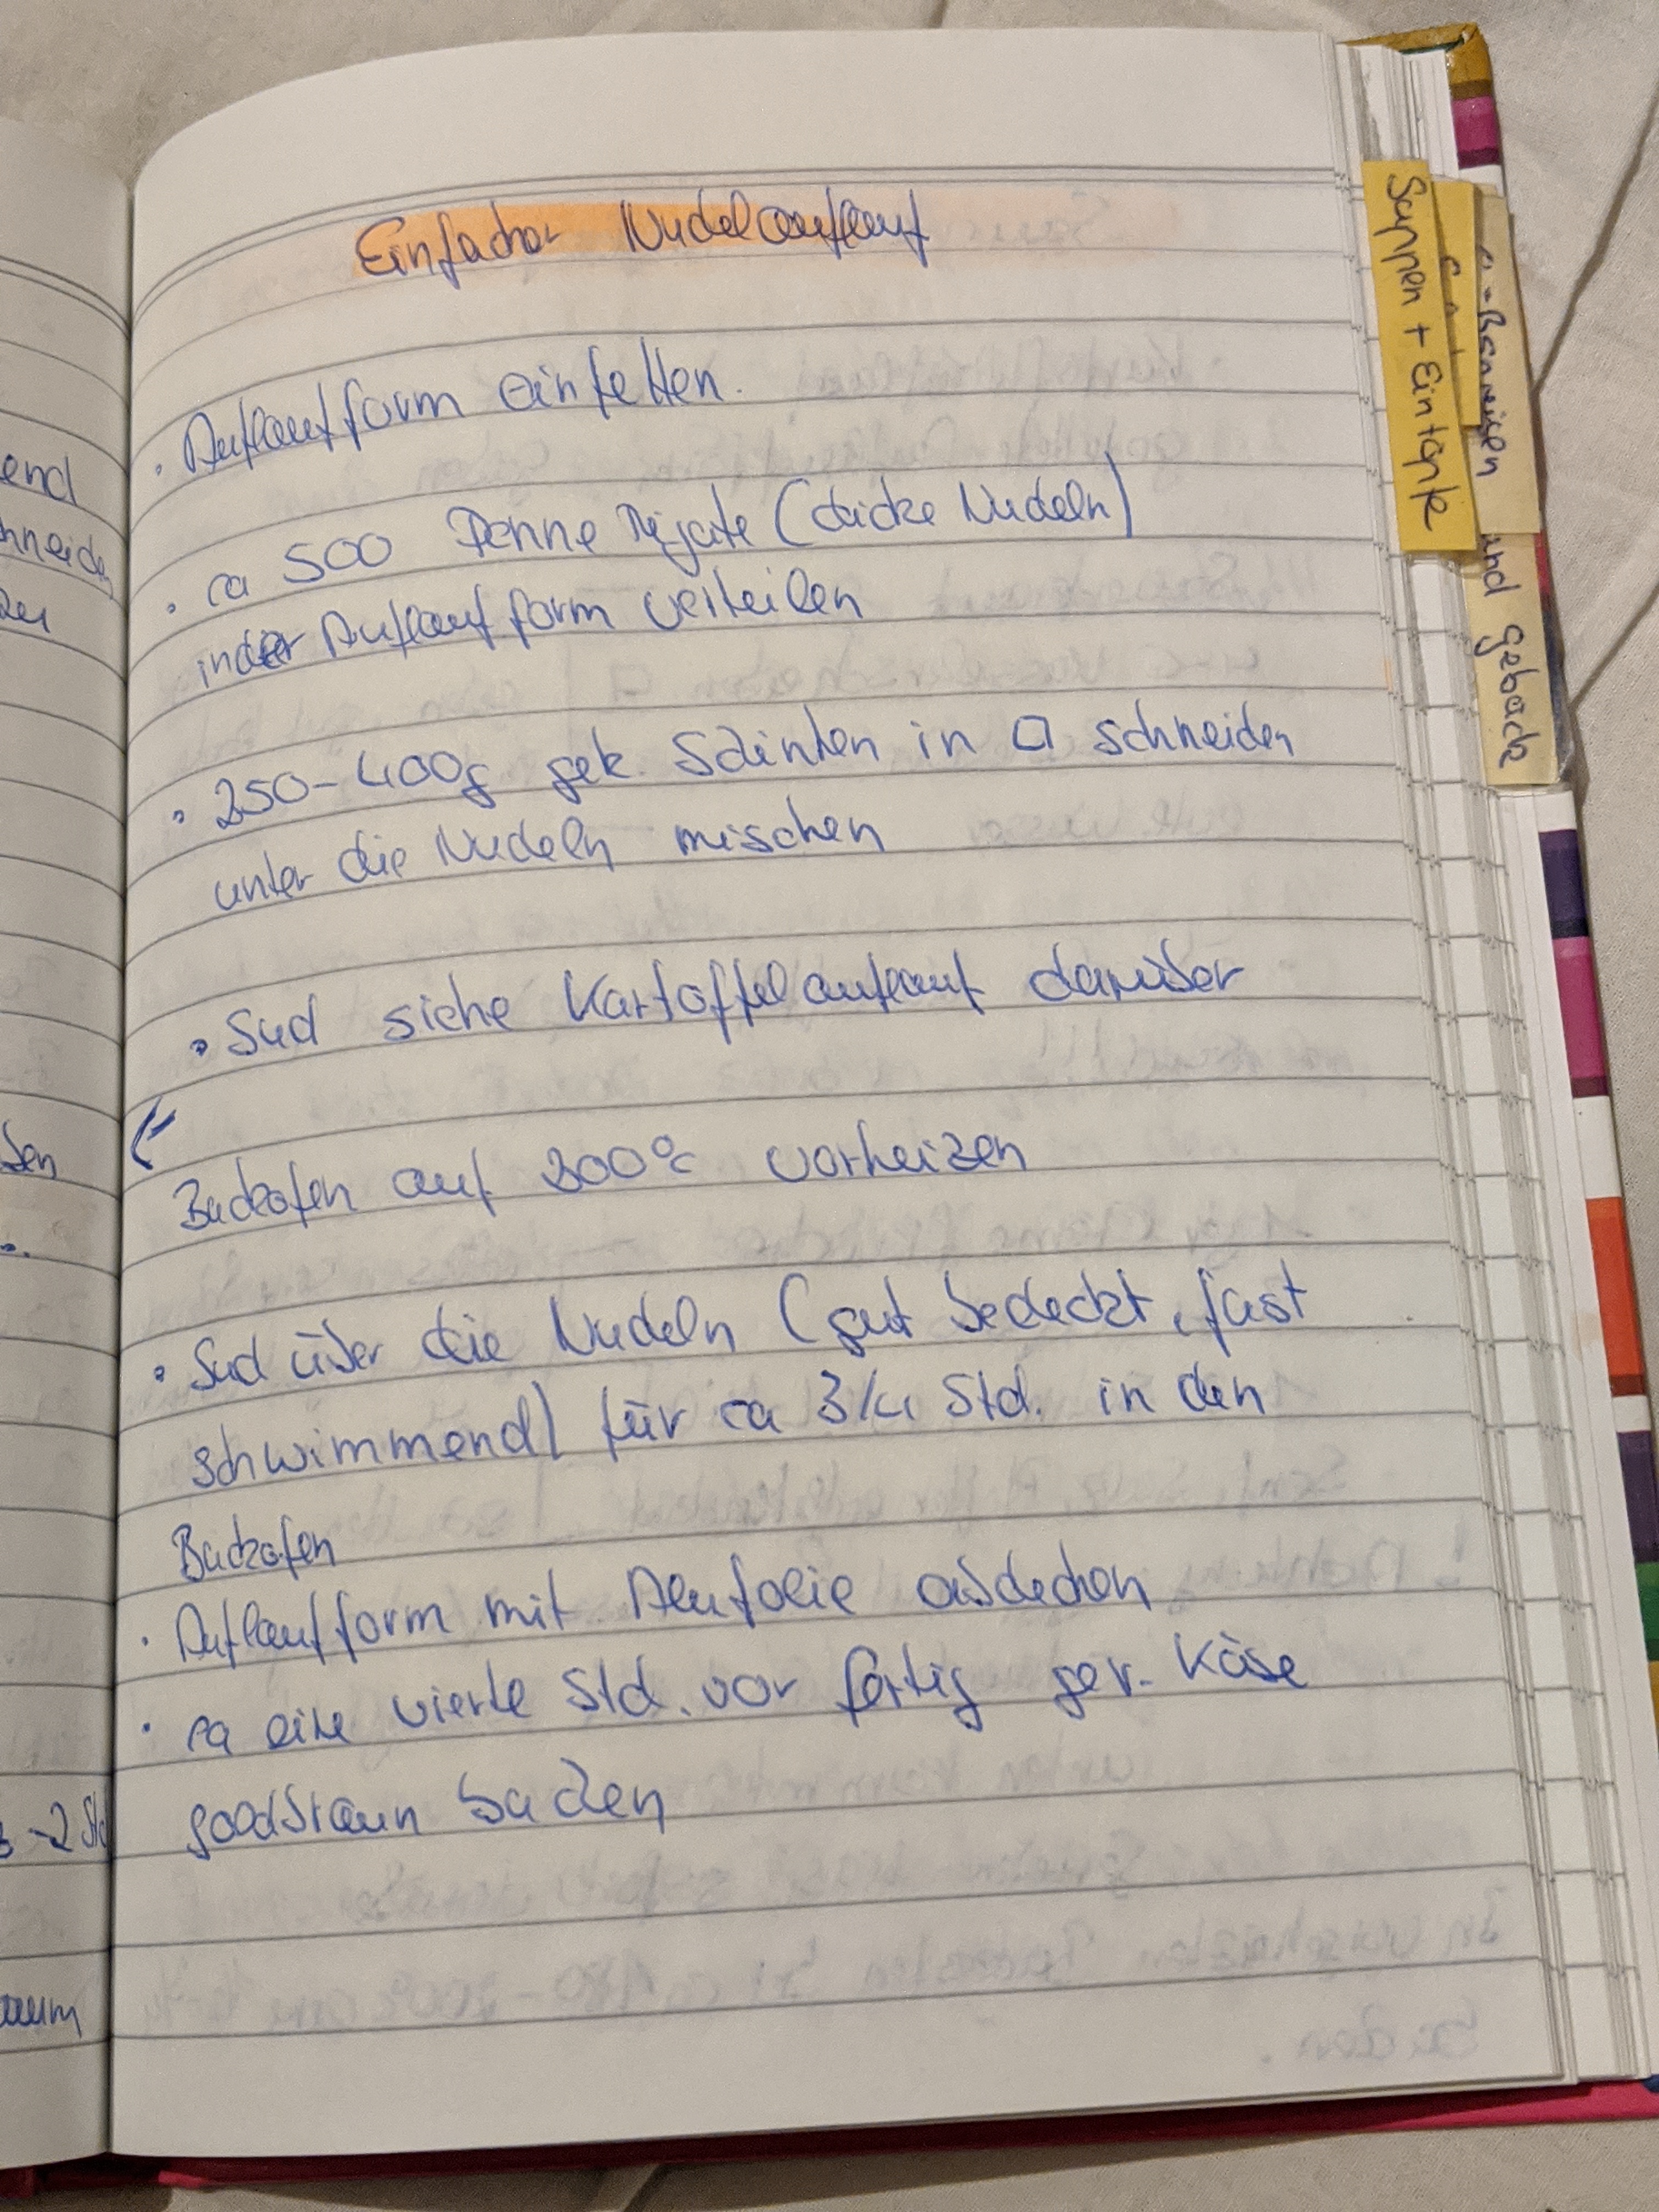 Einfacher Nudelauflauf
· Auflaufform einfetten.
· ca 500 Penne Rigate (dicke Nudeln)
in der Auflaufform verteilen
· 250-400g gek. Schinken in □ schneiden
unter die Nudeln mischen
· Sud siehe Kartoffelauflauf darüber
Backofen auf 200°C vorheizen
· Sud über die Nudeln (gut bedeckt, fast
schwimmend) für ca 3/4 Std. in den
Backofen
· Auflaufform mit Alufolie abdecken
· ca eine vierte Std. vor fertig ger. Käse
goldbraun backen
Suppen + Eintöpfe
und Gebäck
end
-2 Std